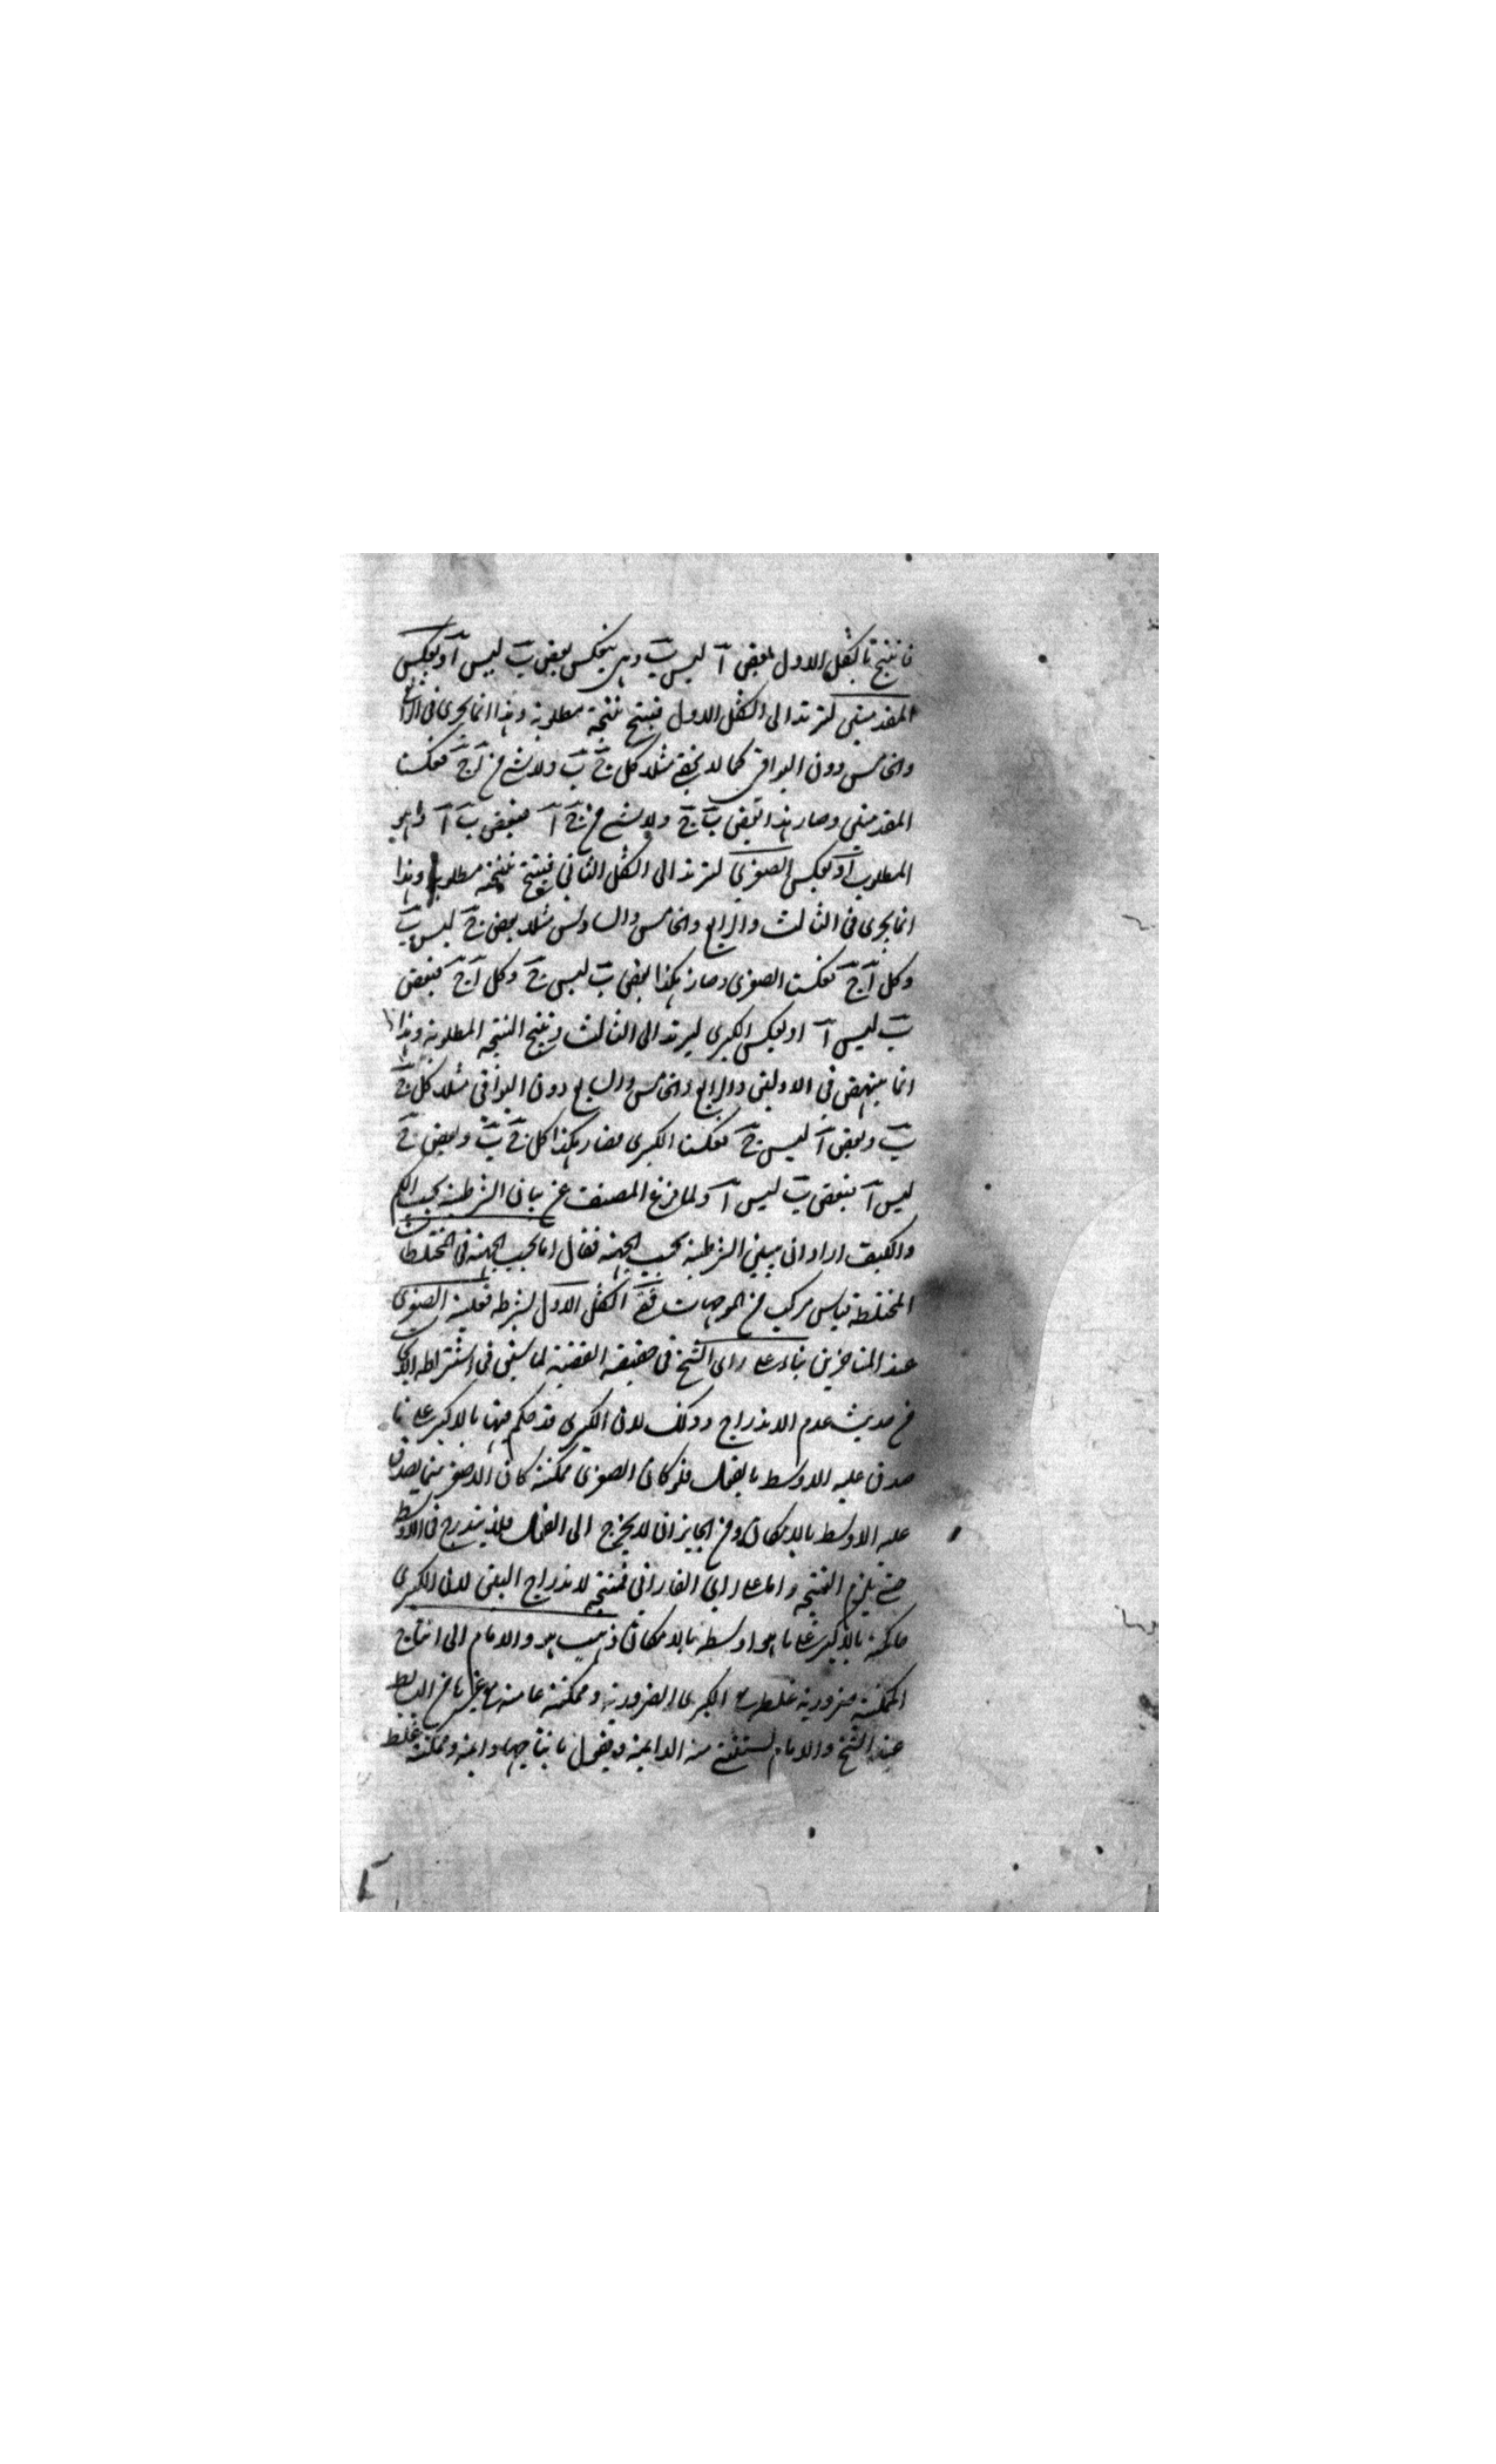 فانتج بالشكل الاول بعض آ ليس ب وهى ينعكس بعض ب ليس آ او بعكس
المقدمتين لترتد الى الشكل الاول فينتج نتيجة مطلوبة وهذا انما يجرى فى الرابع
والخامس دون البواقى كما لا يخفى مثلا كل ج ب ولا شئ من آ ج فعكست
المقدمتين وصار هذا بعض ب ج ولا شئ من ج آ فبعض ب آ وهو
المطلوب او بعكس الصغرى لترتد الى الشكل الثانى فينتج نتيجة مطلوبة وهذا
انما يجرى فى الثالث والرابع والخامس والسادس مثلا بعض ج ليس ب
وكل آ ج فعكست الصغرى وصار هكذا بعض ب ليس ج وكل آ ج فبعض
ب ليس آ او بعكس الكبرى ليرتد الى الثالث وينتج النتيجة المطلوبة وهذا
انما ينتهض فى الاولين والرابع والخامس والسابع دون البواقى مثلا كل ج
ب وبعض آ ليس ج فعكست الكبرى فصار هكذا كل ج ب وبعض ج
ليس آ فبعض ب ليس آ ولما فرغ المصنف عن بيان الشرطية بحسب الكم
والكيف اراد ان يبين الشرطية بحسب الجهة فقال اما بحسب الجهة فى المختلطات
المختلطة قياس مركب من الموجهات ففى الشكل الاول لشرطه فعلية الصغرى
عند المتاخرين بناء على راى الشيخ فى حقيقة القضية لما سبق فى اشتراط
من حديث عدم الاندراج وذلك لان الكبرى قد حكم فيها بالاكبر على ما
صدق عليه الاوسط بالفعل فلو كان الصغرى ممكنة كان الاصغر مما يصدق
عليه الاوسط بالامكان ومن الجايز ان لا يخرج الى الفعل فلا يندرج فى الاوسط
حتى يلزم النتيجة واما على راى الفارابى فمنتجة لاندراج البعض لان الكبرى
حاكمة بالاكبر على ما هو اوسط بالامكان ذهب هو والامام الى انتاج
الممكنة ضرورية خلط مع الكبرى الضرورية وممكنة عامة مع غيرها من البسايط
عند الشيخ والامام استثنى منه الدايمة ويقول بانتاجها دايمة وممكنة خلط